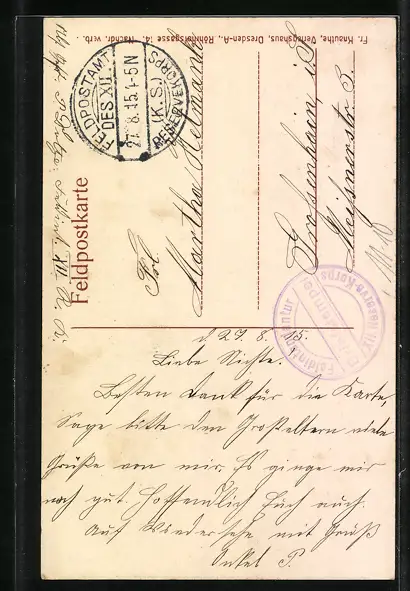 Fr. Knauthe, Verlagshaus, Dresden-A., Röhrhofsgasse 14. Nachdr. verb.
Feldpostkarte
FELDPOSTAMT
DES XII.
27.8.15.1-5N
(K.S.)
RESERVEKORPS
Frl.
Martha
Großenhain i/S
Meißnerstr. 3.
XII. R. K.
Feldintendantur
XII. Reserve-Korps
d. 27. 8. 15.
Liebe Nichte.
Besten Dank für die Karte,
Sage bitte den Großeltern viele
Grüße von mir. Es ginge mir
noch gut. Hoffendlich Euch auch.
Auf Wiedersehe mit Gruß
Onkel P.